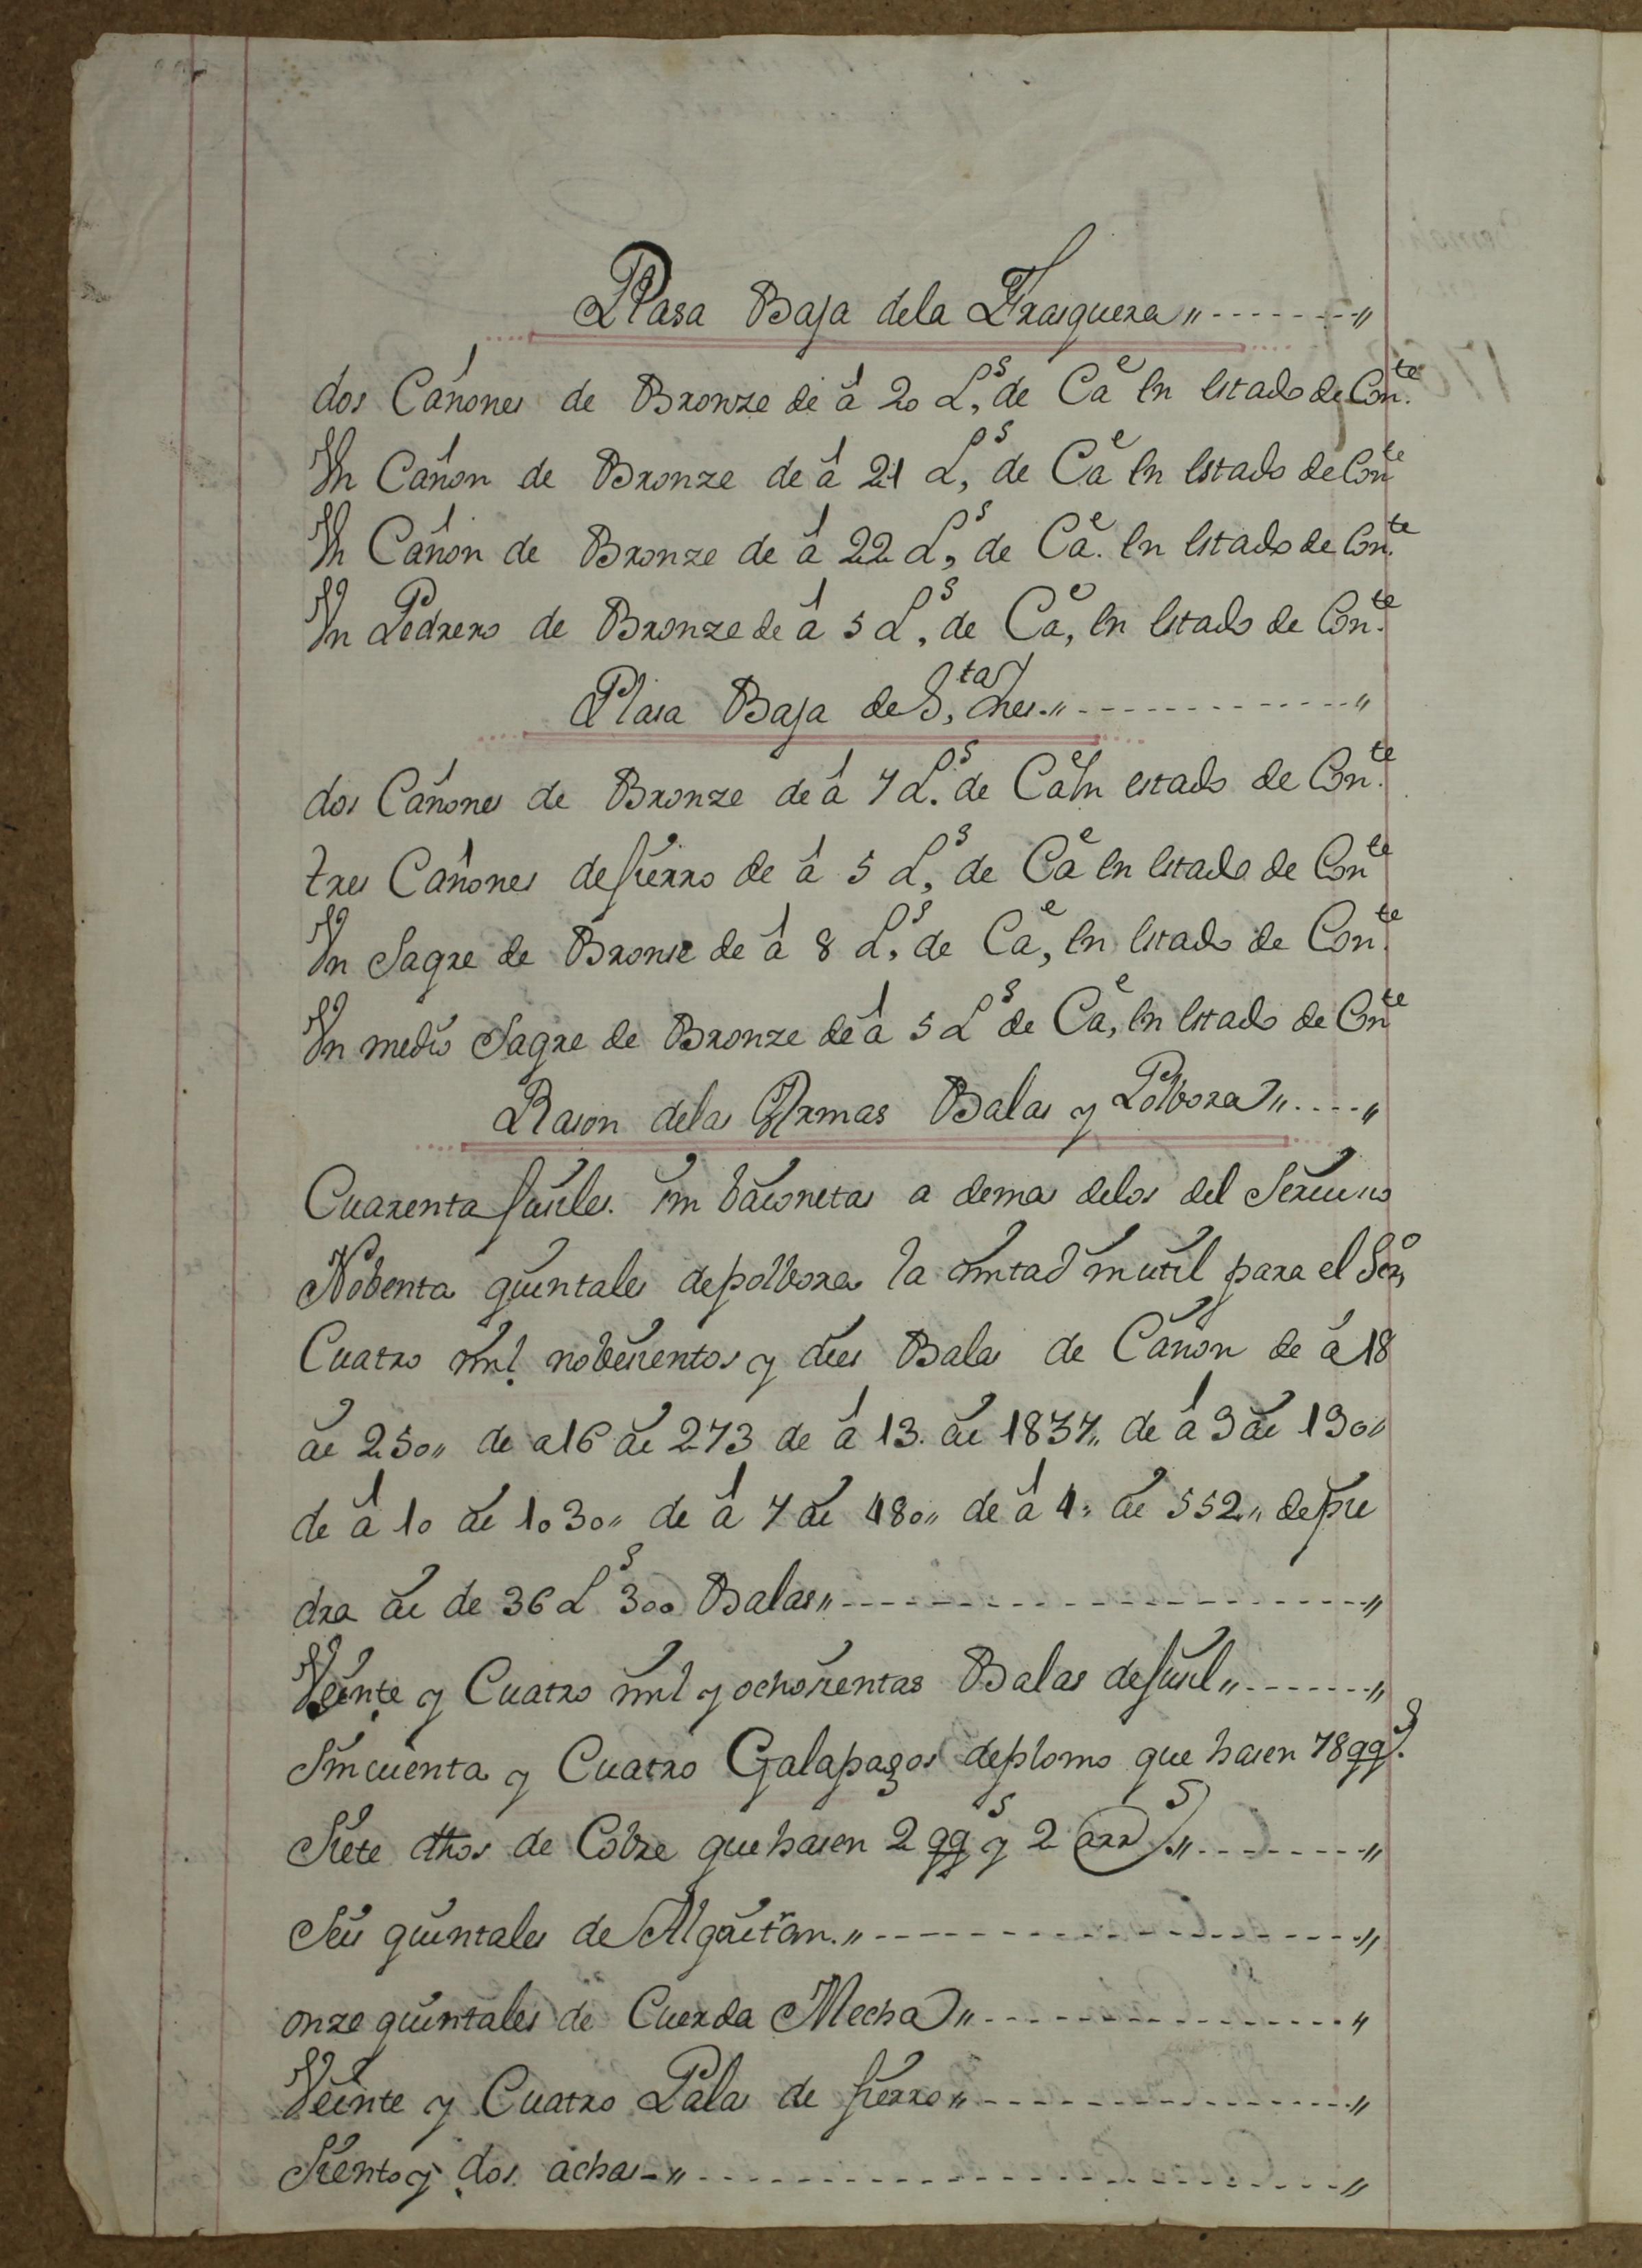 Plasa Baja dela Fraiquera,, - - - - - - - ,,
dos Cañones de Bronze de á 20 L.s de Cae En Estado de Con.te
Vn Cañon de Bronze de á 21 L.s de Cae En Estado de Conte
Vn Cañon de Bronze de á 22 L.s de Cae. En Estado de Con.te
Vn Pedrero de Bronze de á 5 L.s de Cae, En Estado de Con.te
Plasa Baja de S.tas Ines.,, - - - - - - - - - - - - ,,
dos Cañones de Bronze de á 7 L.s de Cae En estado de Con.te
tres Cañones defierro de á 5 L.s de Cae En Estado de Conte
Vn Sagre de Bronse de á 8 L.s de Cae, En Estado de Con.te
Vn medio Sagre de Bronze de á 5 Ls de Cae, En Estado de Conte
Rason delas Armas Balas y Polbora,, . . . . ,,
Cuarenta fusiles. sin baionetas a demas delos del Seruicio
Nobenta quintales depolbora la mitad inutil para el Sero,
Cuatro mil nobesientos y dies Balas de Cañon de á 18
ai 250,, de a 16 ai 273 de á 13. ai 1837,, de á 9 ai 190,,
de á 10 ai 1030,, de á 7 ai 480,, de á 4,, ai 552,, depie
dra ai de 36 Ls 300 Balas,, - - - - - - - - - - - - - - - - - ,,
Veinte y Cuatro mil y ochosientas Balas defusil,, - - - - - - - ,,
Sincuenta y Cuatro Galapagos deplomo que hasen 78 qqs.
Siete dhos de Cobre que hasen 2 qqs y 2 arrs.,, - - - - - - - - ,,
Seis quintales de Alquitran.,, - - - - - - - - - - - - - - - - - - ,,
onze quintales de Cuerda Mecha,, - - - - - - - - - - - - - - - - ,,
Veinte y Cuatro Palas de fierro,, - - - - - - - - - - - - - - - - ,,
Siento y dos achas-,, - - - - - - - - - - - - - - - - - - - - - - - ,,